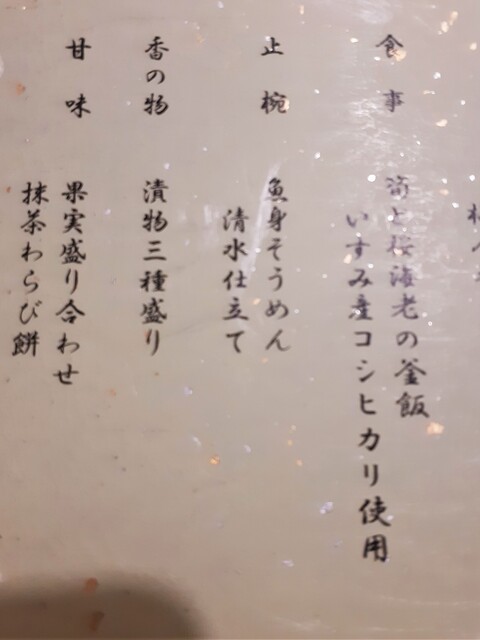 食事
筍と桜海老の釜飯
いすみ産コシヒカリ使用
止椀
魚身そうめん
清水仕立て
香の物
漬物三種盛り
甘味
果実盛り合わせ
抹茶わらび餅